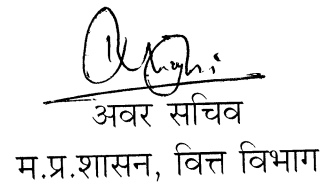 अवर सचिव
म.प्र.शासन, वित्त विभाग